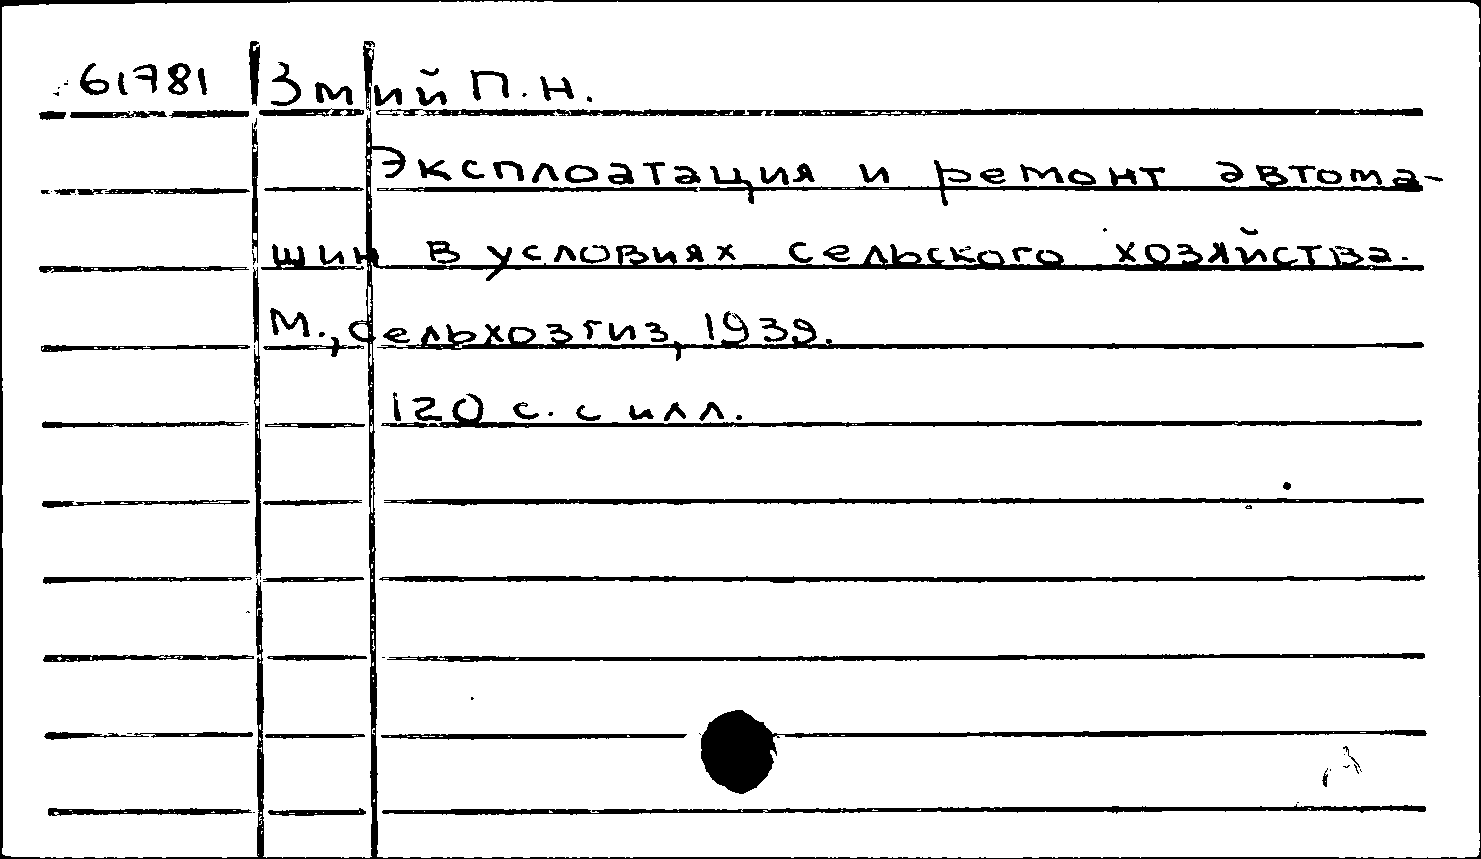 61781 Змий П.Н.
Эксплоатация и ремонт автома-
шин в условиях сельского хозяйства.
М., Сельхозгиз, 1939.
120 с. с илл.